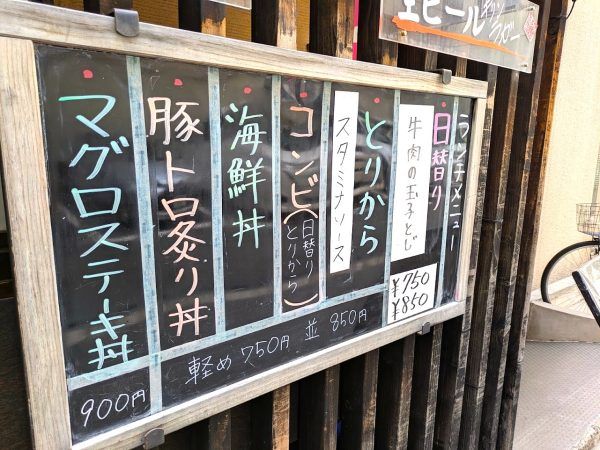 生ビール
ランチメニュー
日替り
牛肉の玉子とじ
¥750
¥850
とりから
スタミナソース
コンビ(日替りとりから)
海鮮丼
豚トロ炙り丼
マグロステーキ丼
軽め750円 並850円
900円